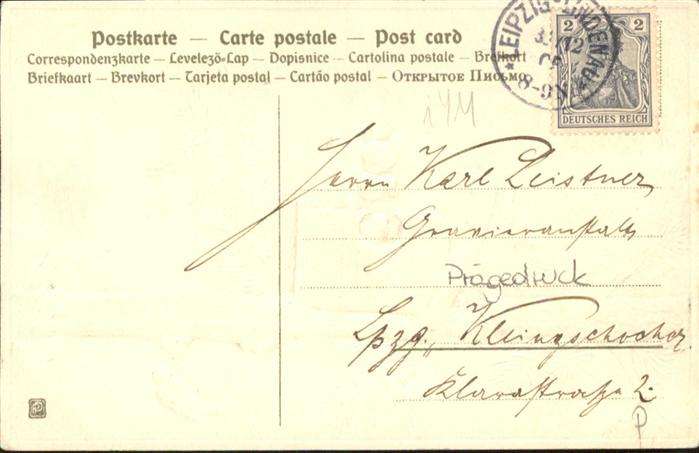 Postkarte — Carte postale — Post card
Correspondenzkarte — Levelező-Lap — Dopisnice — Cartolina postale — Brefkort
Briefkaart — Brevkort — Tarjeta postal — Cartão postal — Открытое Письмо
LEIPZIG-LINDENAU
8-9
2 2
DEUTSCHES REICH
Herrn Karl Leistner
Gravieranstalt
Prägedruck
Lpzg., Kleinzschocher
Klarastraße 2.
P